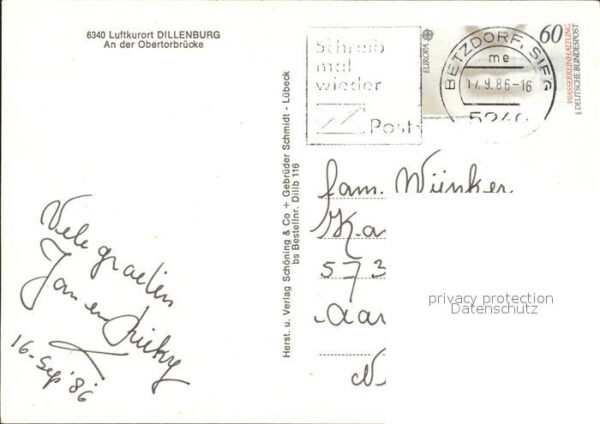 6340 Luftkurort DILLENBURG
An der Obertorbrücke
Schreib
mal
wieder
Post
EUROPA
60
WASSERREINHALTUNG
DEUTSCHE BUNDESPOST
BETZDORF, SIEG
me
17.9.86-16
5240
Herst. u. Verlag Schöning & Co + Gebrüder Schmidt - Lübeck
bs Bestellnr. Dillb 116
fam. Wünker.
Ka
573
Aar
N
privacy protection
Datenschutz
Vele groeten
Jan en Rieky
16-Sep '86